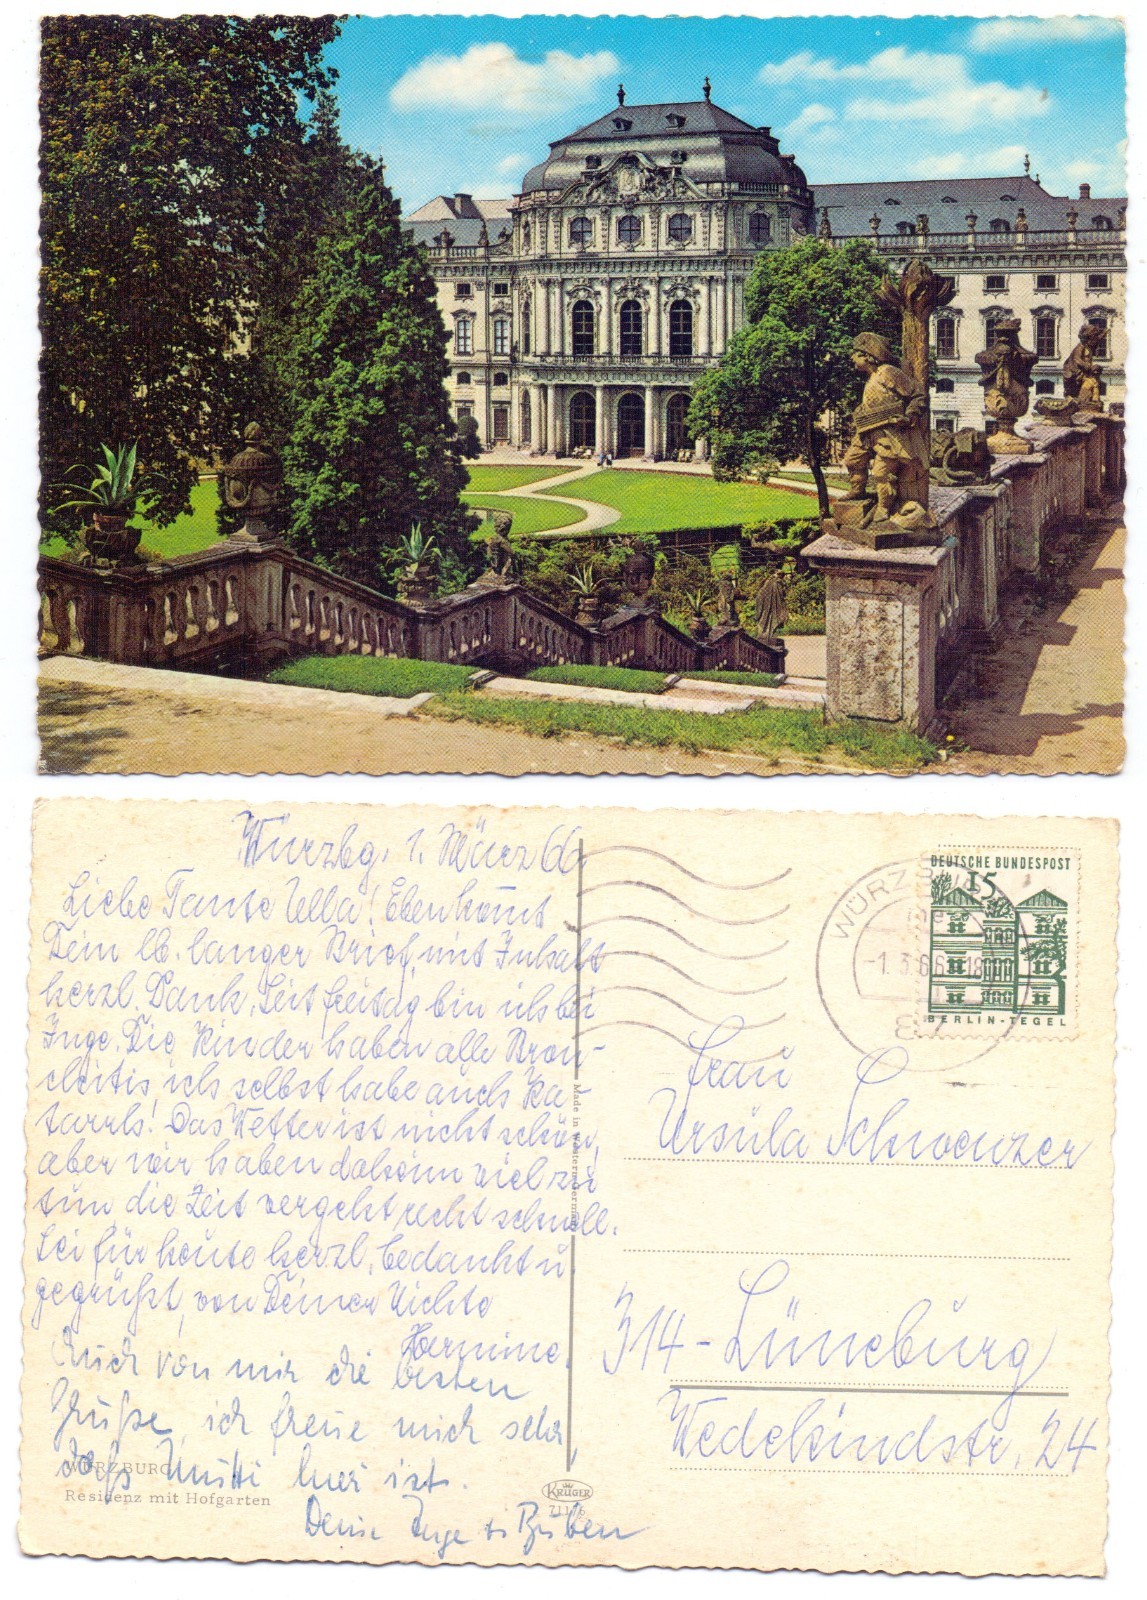 Würzbg. 1. März 66
Liebe Tante Ulla! Eben kommt
Dein lb. langer Brief, mit Inhalt
herzl. Dank, Seit freitag bin ich bei
Inge. Die Kinder haben alle Bron-
cheitis, ich selbst habe auch Ka-
tarrh! Das Wetter ist nicht schön,
aber wir haben daheim viel zu
tun die Zeit vergeht recht schnell.
Sei für heute herzl. bedankt u
gegrüßt, von Deiner Nichte
Hermine.
Auch von mir die besten
Grüße, ich freue mich sehr,
daß Mutti hier ist.
Deine Inge u. Buben
WÜRZBURG
Residenz mit Hofgarten
Made in Western Germany
KRÜGER
DEUTSCHE BUNDESPOST
15
BERLIN-TEGEL
WÜRZBURG
-1.3.66-18
Frau
Ursula Schwenzer
314-Lüneburg
Wedekindstr. 24